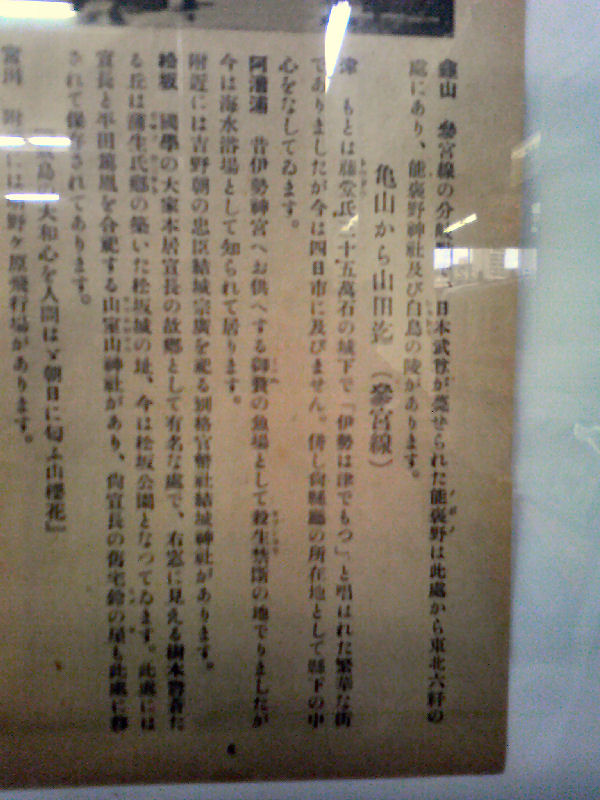 龜山 參宮線の分岐 日本武尊が薨せられた能褒野は此處から東北六粁の
處にあり、能褒野神社及び白鳥の陵があります。
亀山から山田迄 (參宮線)
津 もとは藤堂氏三十五萬石の城下で「伊勢は津でもつ」と唱はれた繁華な街
でありましたが今は四日市に及びません。併し尙縣廳の所在地として縣下の中
心をなしてゐます。
阿漕浦 昔伊勢神宮へお供へする御贄の魚場として殺生禁斷の地でりましたが
今は海水浴場として知られて居ります。
附近には吉野朝の忠臣結城宗廣を祀る別格官幣社結城神社があります。
松坂 國學の大家本居宣長の故鄕として有名な處で、右窓に見える樹木鬱蒼た
る丘は蒲生氏鄕の築いた松坂城の址、今は松坂公園となつてゐます。此處には
宣長と平田篤胤を合祀する山室山神社があり、尙宣長の舊宅鈴の屋も此處に移
されて保存されてあります。
島の大和心を人問はゞ朝日に匂ふ山櫻花』
宮川 附 には 野ケ原飛行場があります。
6